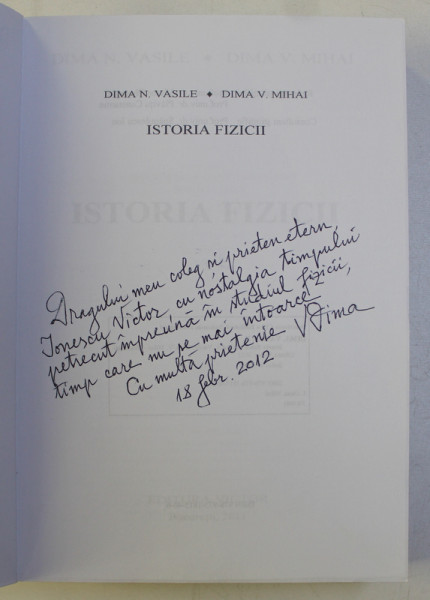 DIMA N. VASILE ♦ DIMA V. MIHAI
ISTORIA FIZICII
Dragului meu coleg și prieten etern,
Ionescu Victor, cu nostalgia timpului
petrecut împreună în studiul fizicii,
timp care nu se mai întoarce
Cu multă prietenie VDima
18 febr. 2012